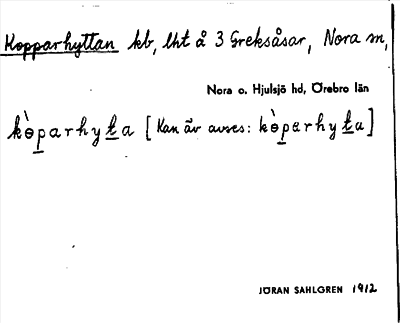 Kopparhyttan kb, lht å 3 Greksåsar, Nora sn,
Nora o. Hjulsjö hd, Örebro län
kò̀p̲arhyt̲a [Kan äv avses: kò̀p̲ərhyt̲a]
JÖRAN SAHLGREN 1912